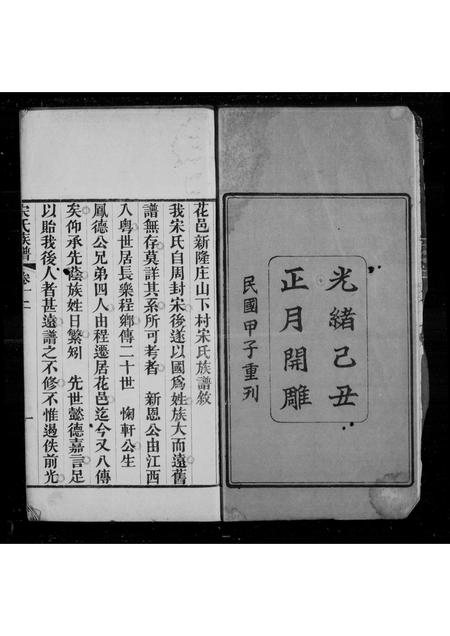 光緒己丑
正月開雕
民國甲子重刊
花邑新隆庄山下村宋氏族譜敘
我宋氏自周封宋後遂以國為姓族大而遠舊
譜無存莫詳其系所可考者 新恩公由江西
入粵世居長樂程鄉傳二十世 掬軒公生
鳳德公兄弟四人由程遷居花邑迄今又八傳
矣仰承先蔭族姓日繁矧 先世懿德嘉言足
以貽我後人者甚遠譜之不修不惟遏佚前光
宋氏族譜 卷十二 一